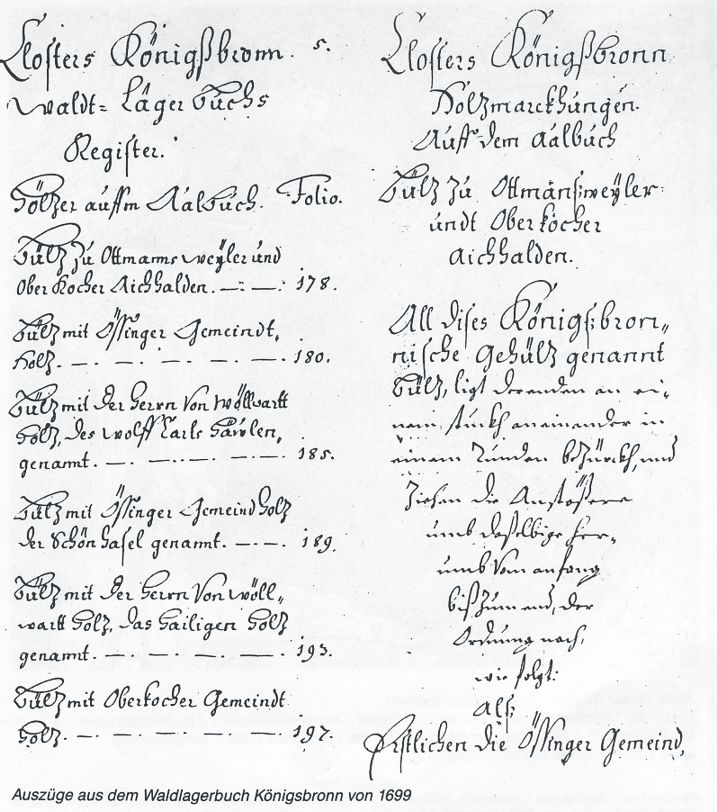 Closters Königßbronn. 5.
Waldt= Läger Buchs
Register.
Höltzer auffm Aalbuch. Folio.
Bültz zu Ottmannsweyler und
Ober Kocher Aichhalden. — 178.
Bültz mit Össinger Gemeindt,
Holtz. — 180.
Bültz mit der Herrn Von Wöllwartt
Holtz, des Wolff Carls
genannt. — 185.
Bültz mit Össinger Gemeind Holtz
der Schön Hasel genannt. — 189.
Bültz mit der Herrn Von Wöll„
wartt Holtz, das Hailigen Holtz
genannt. — 193.
Bültz mit Oberkocher Gemeindt
Holtz. — 197.
Closters Königßbronn
Holtzmarckhungen.
Auff dem Aalbuch
Bültz zu Ottmanßweyler
undt Oberkocher
Aichhalden.
All dises Königsbron„
nische Gehültz genannt
Bültz, ligt an ei„
nem stuckh an einander in
einem Runden bezürckh, und
ziehen die Anstößere
umb dasselbige her„
umb Vom anfang
biß zum end, der
Ordnung nach,
wie folgt:
Alß,
Erstlichen die Össinger Gemeind,
Auszüge aus dem Waldlagerbuch Königsbronn von 1699